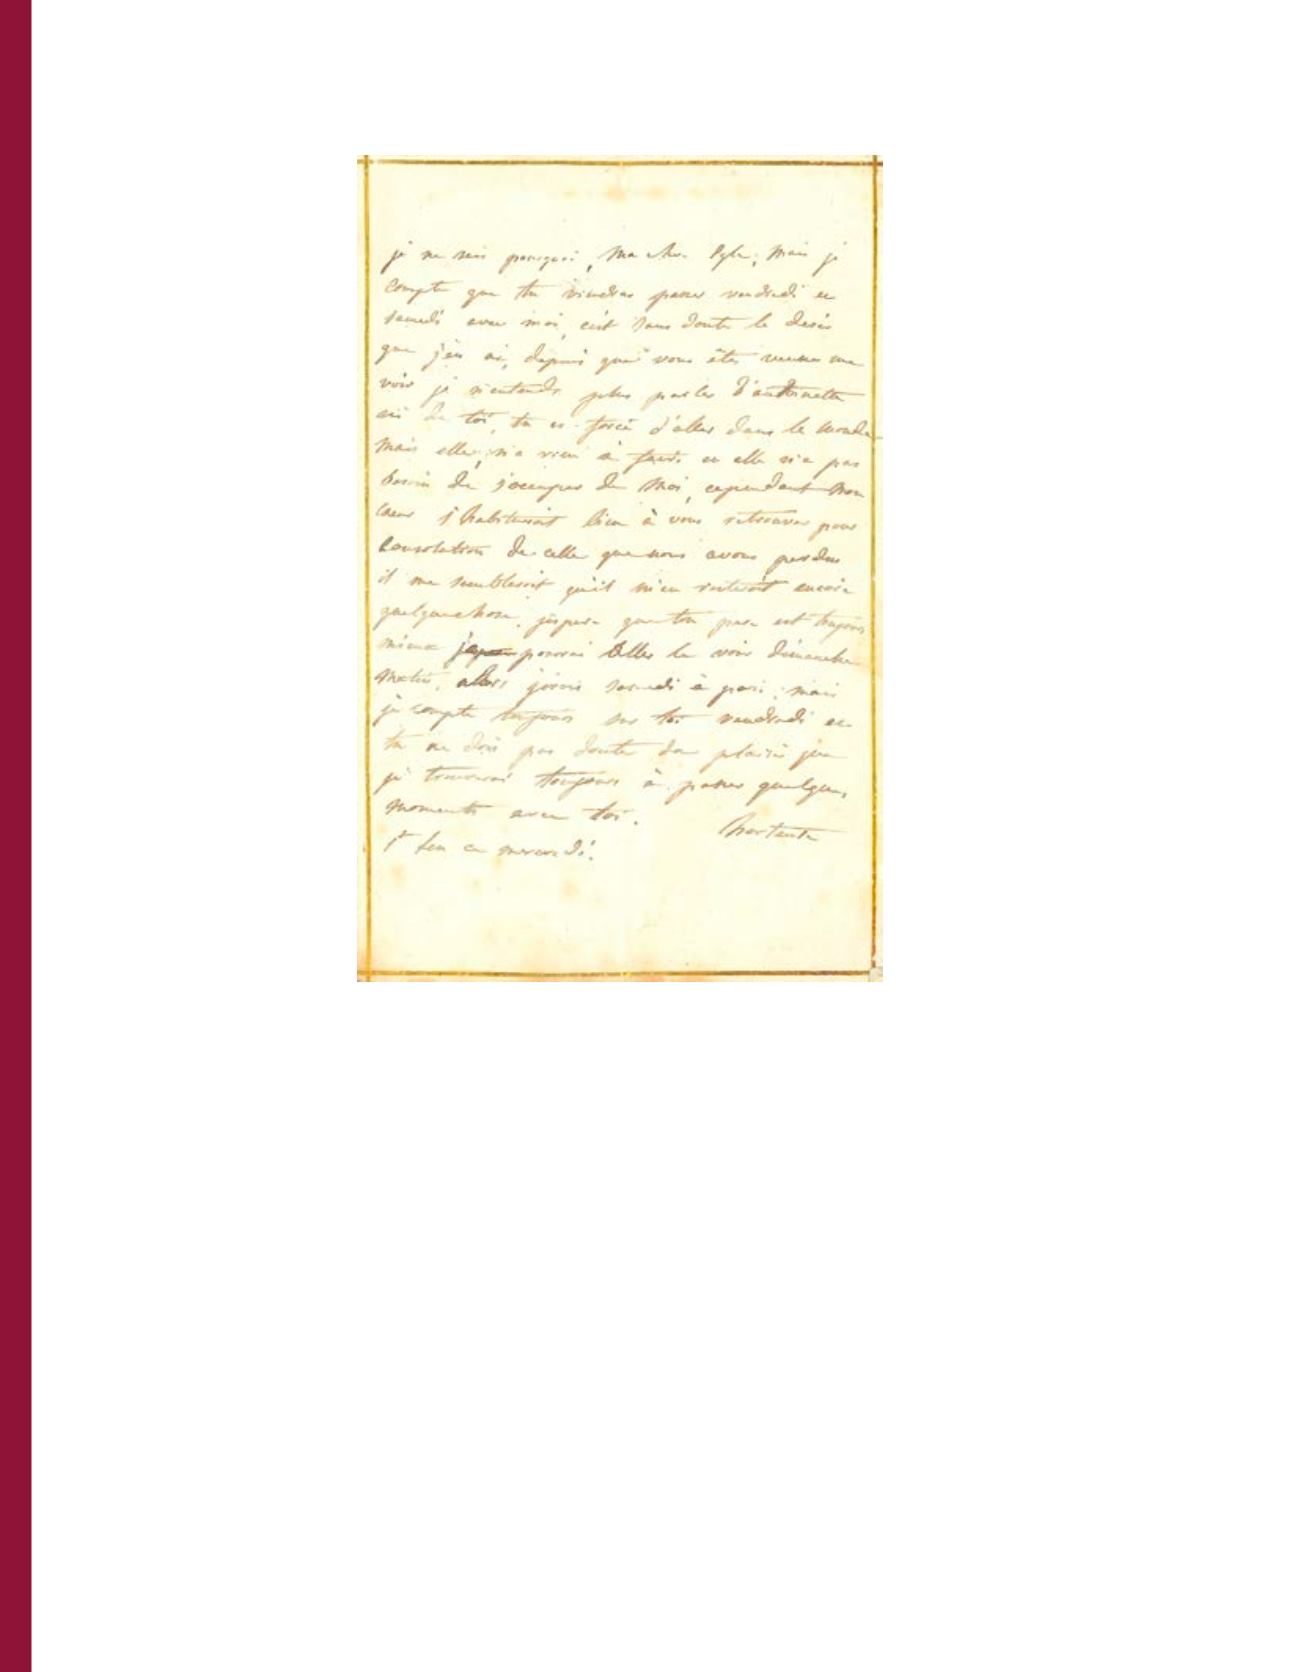 je ne sais pourquoi, ma chere Egle, mais je
compte que tu viendras passer vendredi et
samedi avec moi, c'est sans doute le desir
que j'en ai, depuis que vous êtes venues me
voir je n'entends plus parler d'antoinette
ni de toi, tu es forcé d'aller dans le monde
mais elle, n'a rien à faire et elle n'a pas
besoin de s'occuper de moi, cependant mon
cœur s'habitueroit bien à vous retrouver pour
consolation de celle que nous avons perdue
il me sembleroit qu'il m'en resteroit encore
quelque chose. j'espere que ton pere est toujours
mieux pourrai aller le voir dimanche
matin, alors j'irois samedi à paris, mais
je compte toujours sur toi vendredi et
tu ne dois pas douter du plaisir que
je trouverai toujours à passer quelques
moments avec toi.
hortense
St leu ce mercredi.